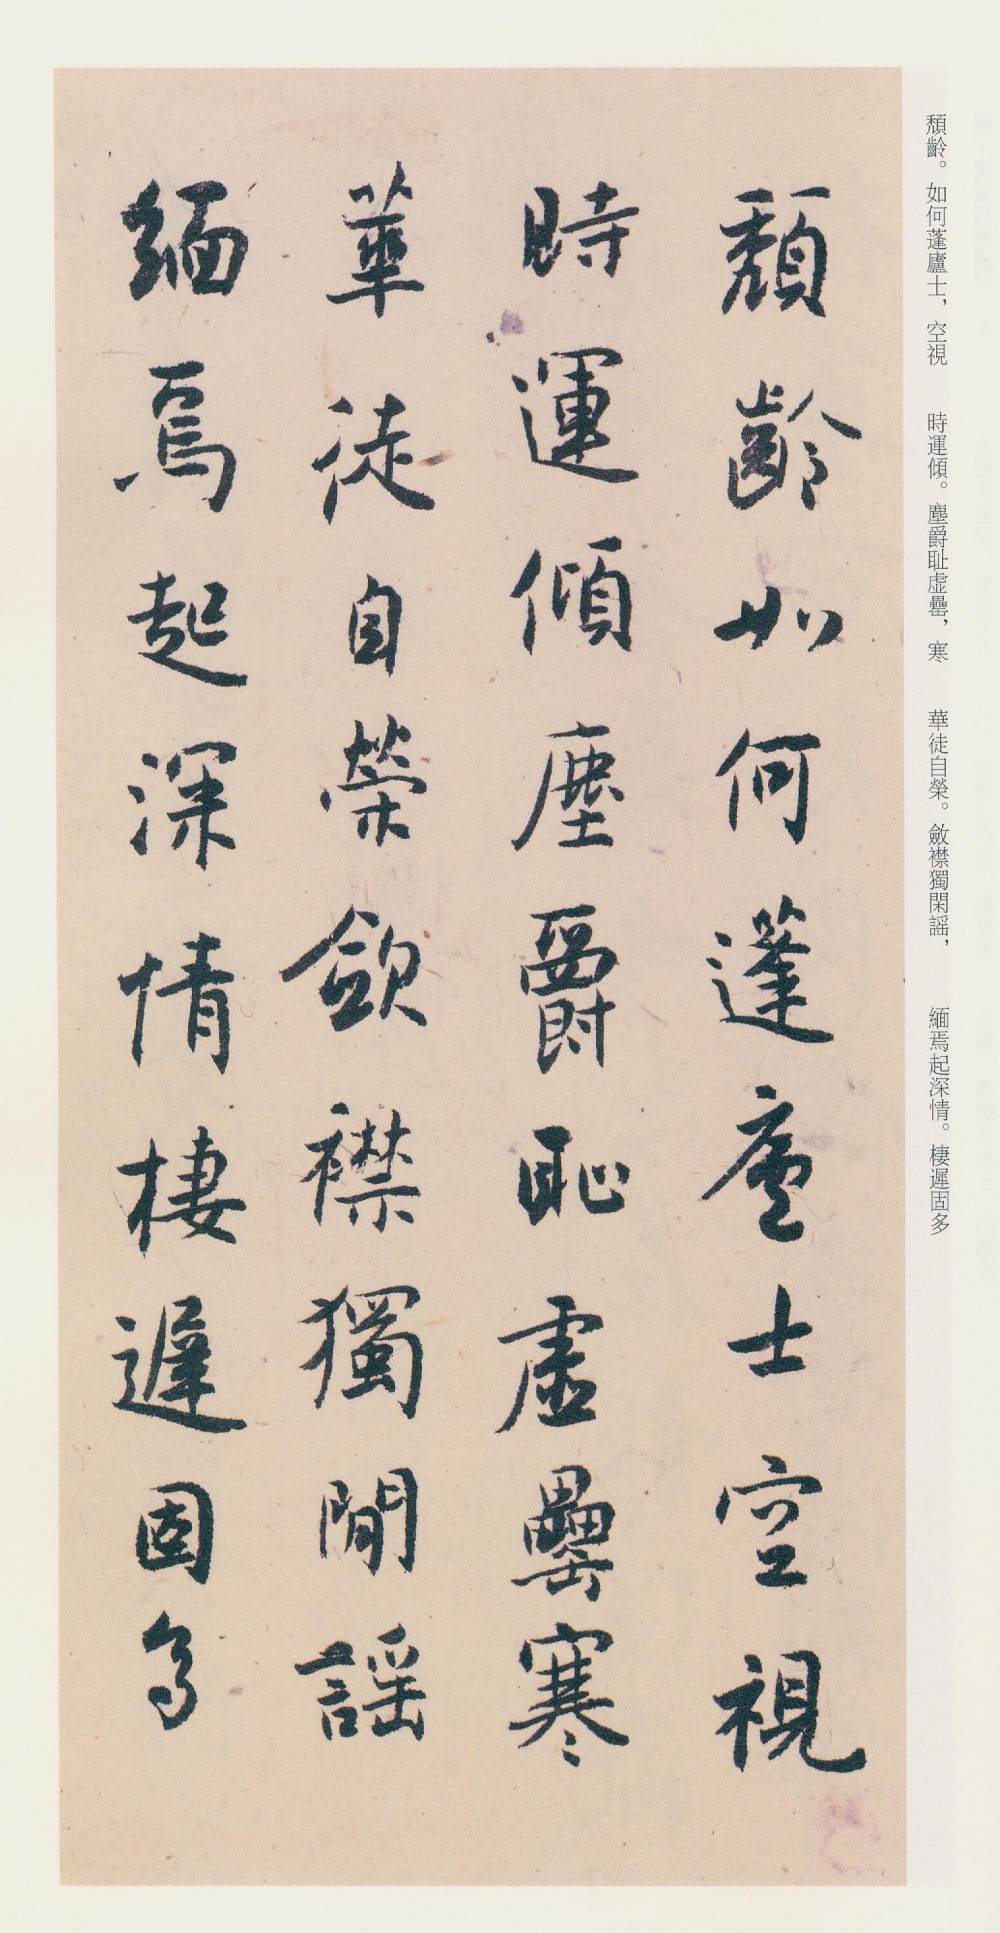 頹齡。如何蓬廬士，空視
時運傾。塵爵耻虛罍，寒
華徒自榮。斂襟獨閑謠，
緬焉起深情。棲遲固多
頹齡如何蓬廬士空視
時運傾塵爵恥虛罍寒
華徒自榮斂襟獨閒謠
緬焉起深情棲遲固多